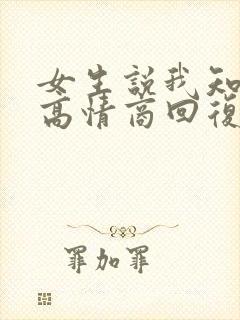 女生說我知
高情商回復
罪加罪